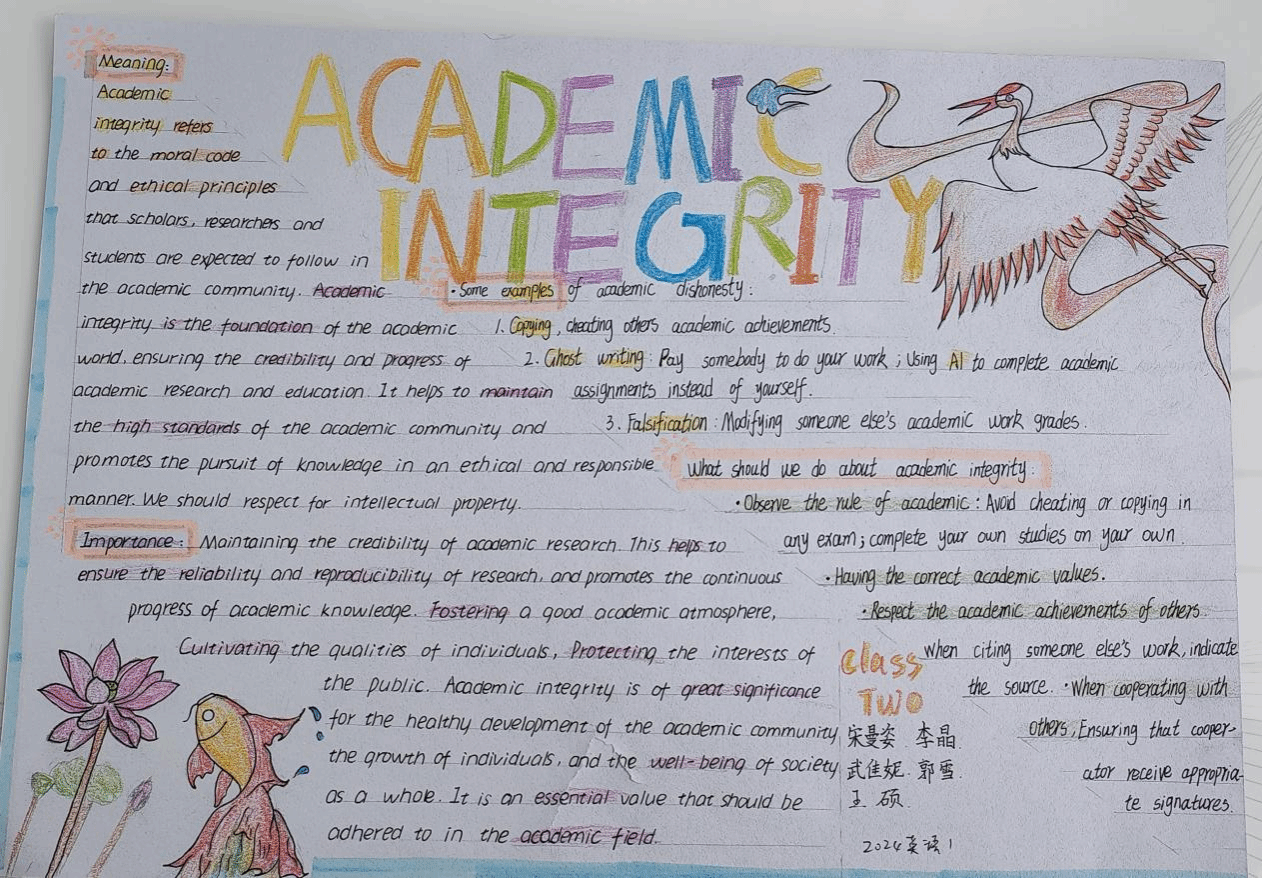 ACADEMIC
INTEGRITY
Meaning:
Academic
integrity refers
to the moral code
and ethical principles
that scholars, researchers and
students are expected to follow in
the academic community. Academic
integrity is the foundation of the academic
world, ensuring the credibility and progress of
academic research and education. It helps to maintain
the high standards of the academic community and
promotes the pursuit of knowledge in an ethical and responsible
manner. We should respect for intellectual property.
Importance: Maintaining the credibility of academic research. This helps to
ensure the reliability and reproducibility of research, and promotes the continuous
progress of academic knowledge. Fostering a good academic atmosphere,
Cultivating the qualities of individuals, Protecting the interests of
the public. Academic integrity is of great significance
for the healthy development of the academic community,
the growth of individuals, and the well-being of society
as a whole. It is an essential value that should be
adhered to in the academic field.
·Some examples of academic dishonesty:
1. Copying, cheating others academic achievements.
2. Ghost writing: Pay somebody to do your work; Using AI to complete academic
assignments instead of yourself.
3. Falsification: Modifying someone else's academic work grades.
What should we do about academic integrity:
·Observe the rule of academic: Avoid cheating or copying in
any exam; complete your own studies on your own.
·Having the correct academic values.
·Respect the academic achievements of others.
When citing someone else's work, indicate
the source. ·When cooperating with
others, Ensuring that cooper-
ator receive appropria-
te signatures.
Class
TWO
宋曼姿 李晶
武佳妮. 郭雪.
王硕.
2024英语1